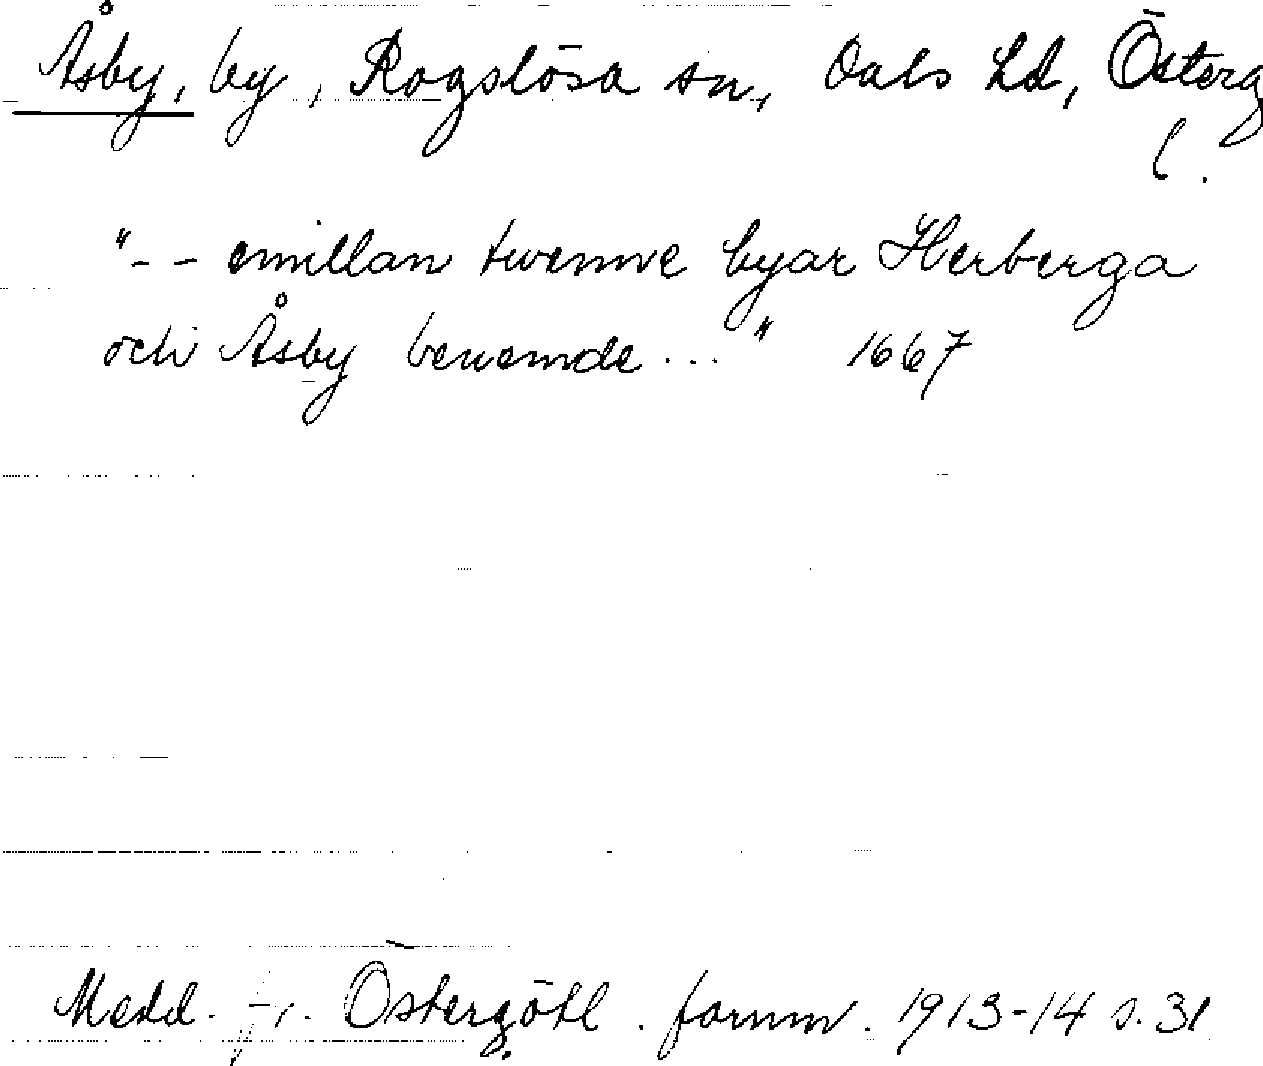 Åsby, by, Rogslösa sn, Dals hd, Österg
l.
"-- emillan twenne byar Herberga
och Åsby benemde ..." 1667
Medd. fr. Östergötl. fornm. 1913-14 s. 31